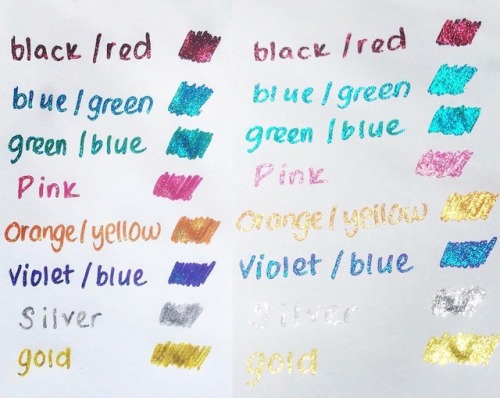 black/red
blue/green
green/blue
Pink
Orange/yellow
Violet/blue
Silver
gold
black/red
blue/green
green/blue
Pink
Orange/yellow
Violet/blue
Silver
gold